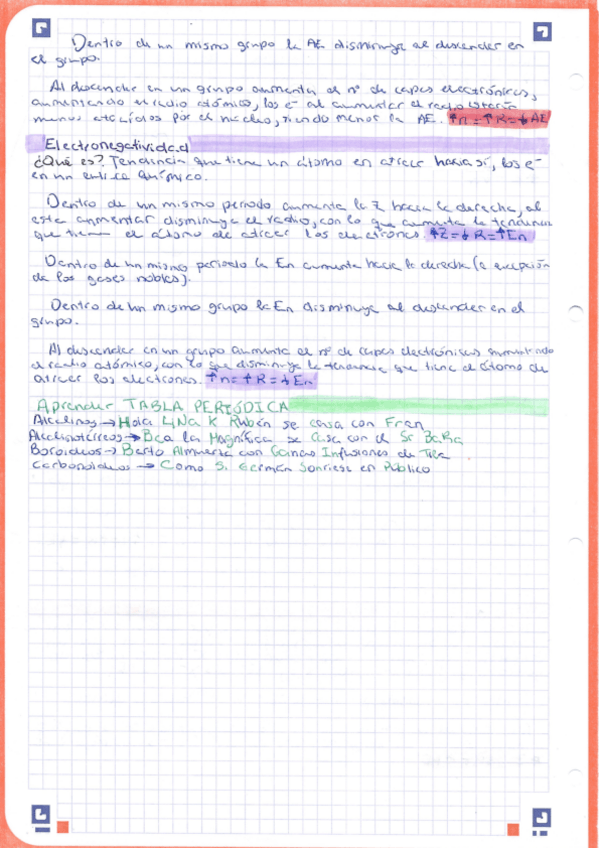 Dentro de un mismo grupo la AE disminuye al descender en
el grupo.
Al descender en un grupo aumenta el nº de capas electrónicas,
aumentando el radio atómico, los e⁻ al aumentar el radio estarán
menos atraídos por el núcleo, siendo menor la AE. ↑n=↑R=↓AE
Electronegatividad
¿Qué es? Tendencia que tiene un átomo en atraer hacia sí, los e⁻
en un enlace químico.
Dentro de un mismo periodo aumenta la Z hacia la derecha, al
este aumentar disminuye el radio, con lo que aumenta la tendencia
que tiene el átomo de atraer los electrones. ↑Z=↓R=↑En
Dentro de un mismo periodo la En aumenta hacia la derecha (a excepción
de los gases nobles).
Dentro de un mismo grupo la En disminuye al descender en el
grupo.
Al descender en un grupo aumenta el nº de capas electrónicas aumentando
el radio atómico, con lo que disminuye la tendencia que tiene el átomo de
atraer los electrones. ↑n=↑R=↓En
Aprender TABLA PERIÓDICA
Alcalinos → Hola LiNa K Rubén se casa con Fran
Alcalinotérreos → Bea la Magnífica se Casa con el Sr BaRa
Boroideos → Berto Almuerza con Ganas Infusiones de Tila
Carbonoideos → Como Si Germán Sonriese en Público